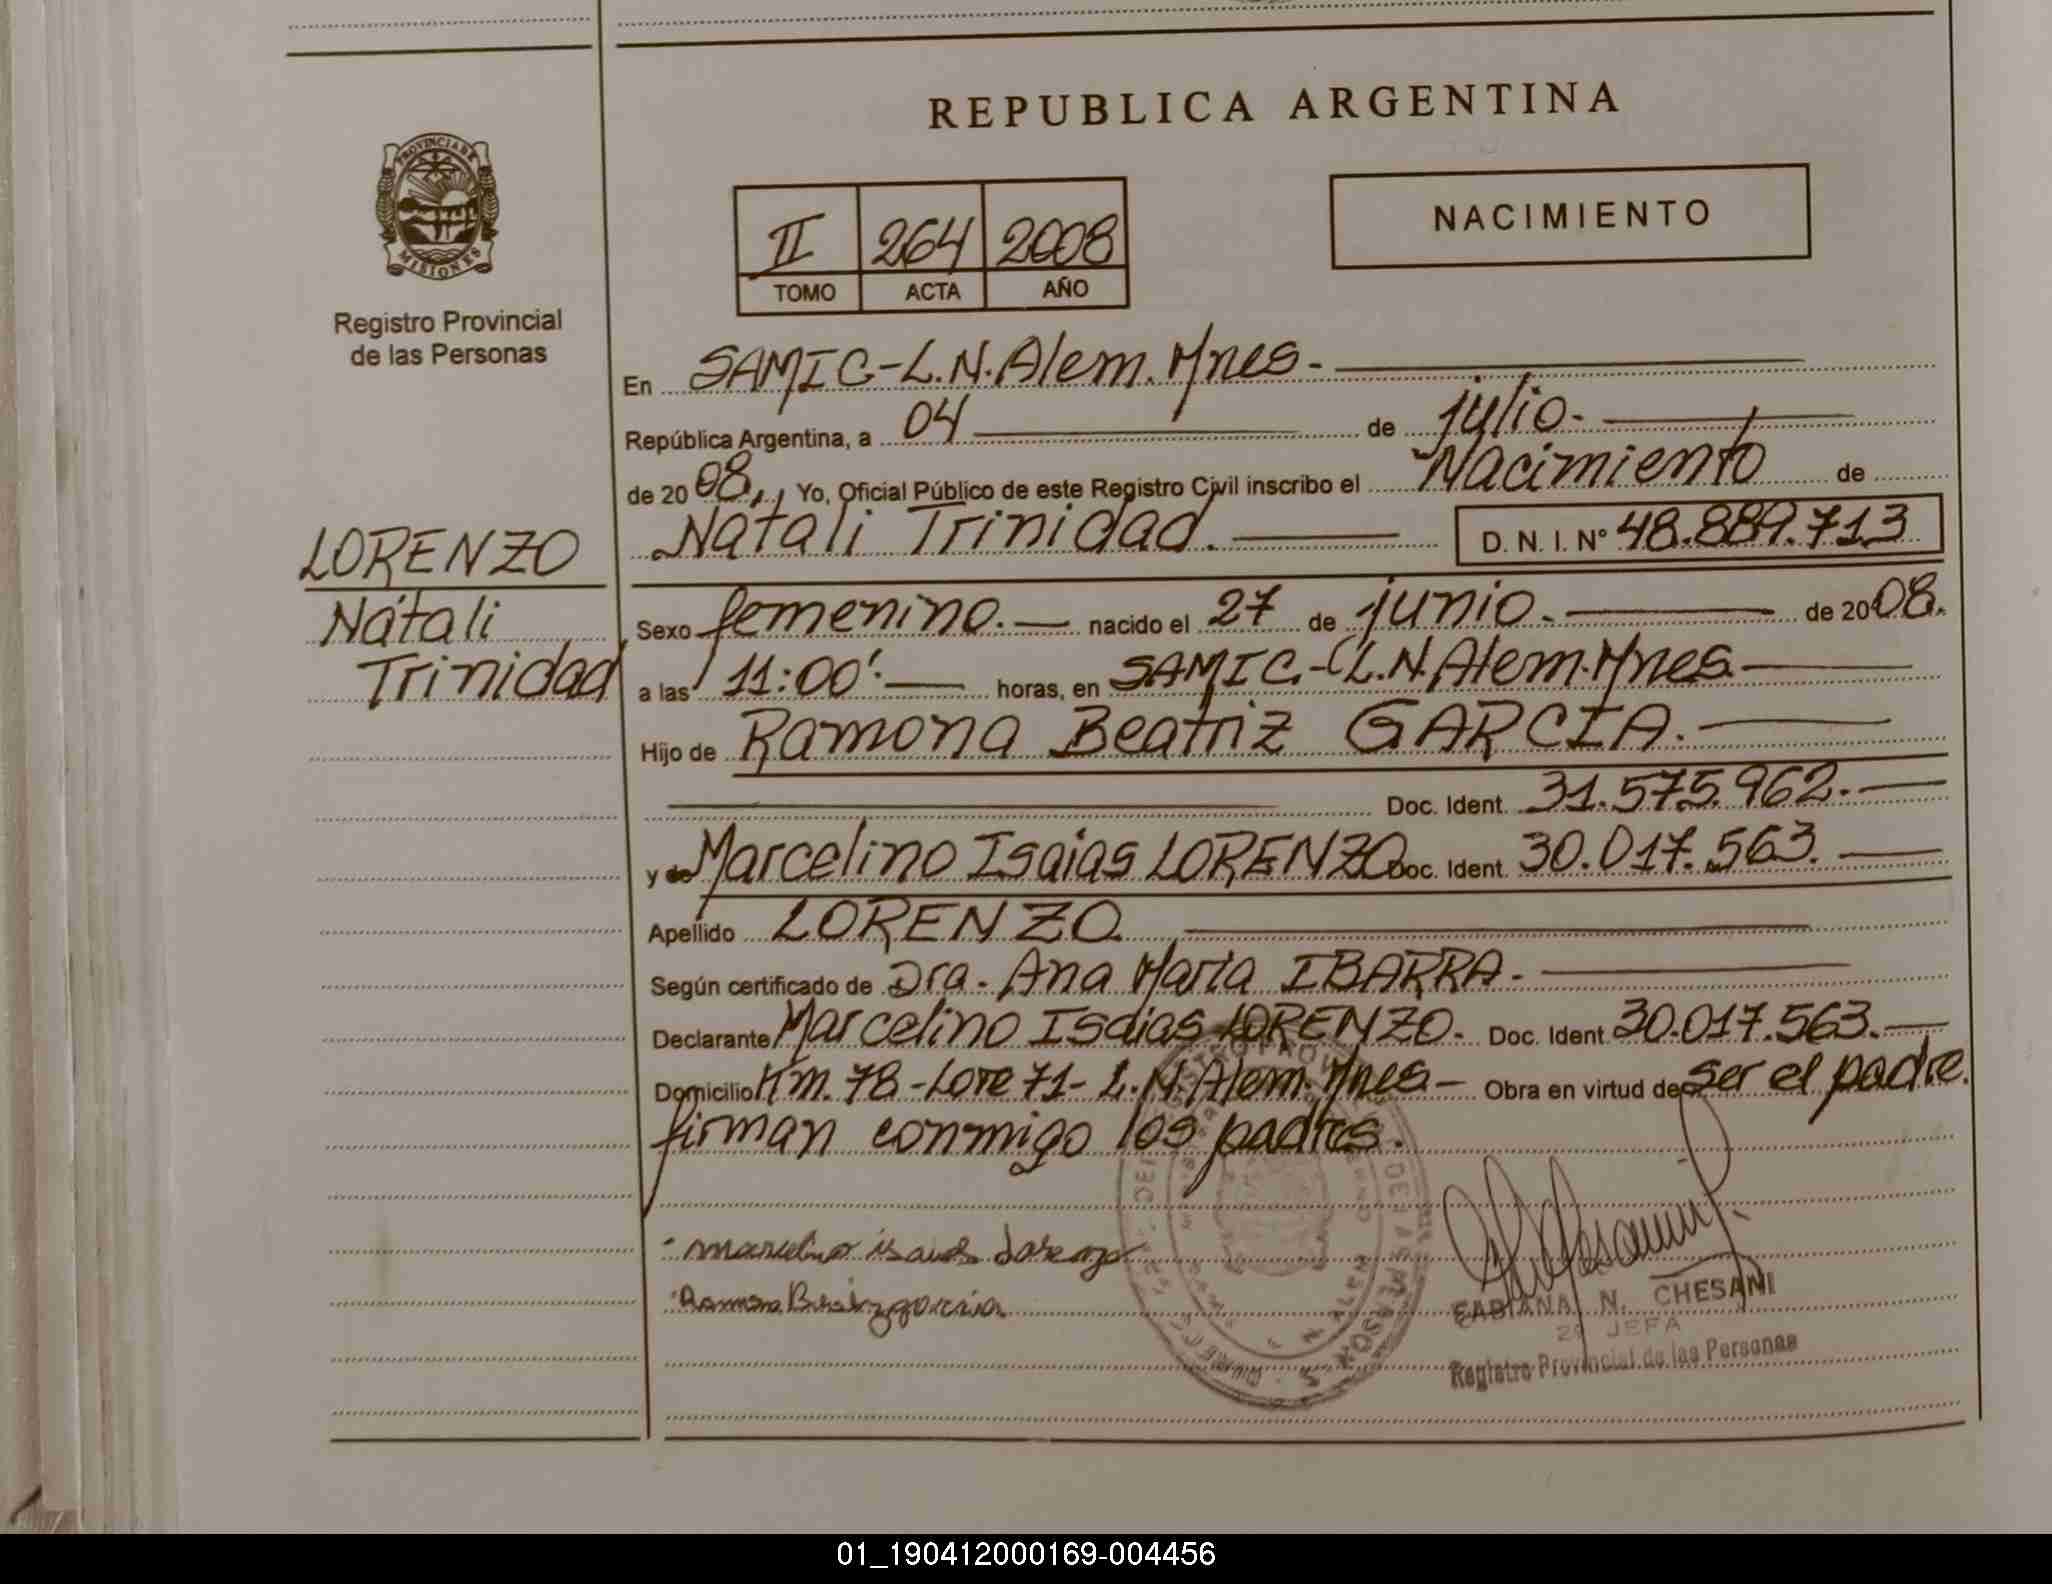 REPUBLICA ARGENTINA
PROVINCIA DE
MISIONES
Registro Provincial
de las Personas
II 264 2008
TOMO ACTA AÑO
NACIMIENTO
En SAMIC-L.N.Alem.Mnes.-
República Argentina, a 04 de julio.-
de 2008,, Yo, Oficial Público de este Registro Civil inscribo el Nacimiento de
Natali Trinidad. D. N. I. Nº 48.889.713
LORENZO
Natali
Trinidad
Sexo femenino. nacido el 27 de junio. de 2008.
a las 11:00'. horas, en SAMIC.-L.N.Alem.Mnes.
Hijo de Ramona Beatriz GARCIA.
Doc. Ident. 31.575.962.
y de Marcelino Isaias LORENZO Doc. Ident. 30.017.563.
Apellido LORENZO.
Según certificado de Dra. Ana Maria IBARRA.
Declarante Marcelino Isaias LORENZO. Doc. Ident. 30.017.563.
Domicilio Km. 78-Lote 71- L.N.Alem.Mnes- Obra en virtud de ser el padre.
firman conmigo los padres.
marcelino isaias Lorenzo
Ramona Beatriz garcia
FABIANA N. CHESANI
2º JEFA
Registro Provincial de las Personas
01_190412000169-004456